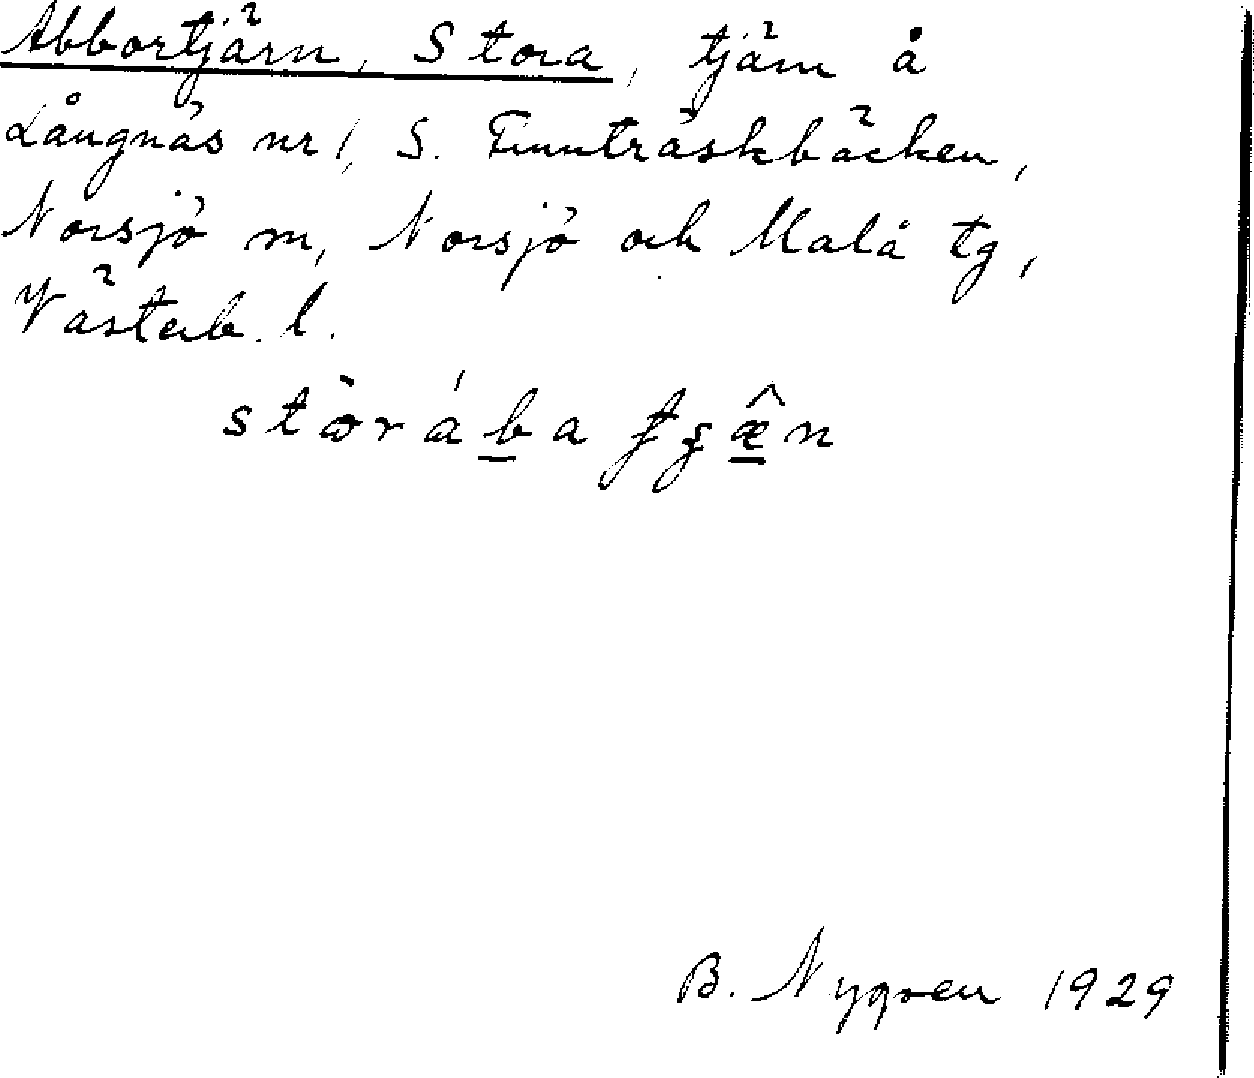 Abbortjärn, Stora, tjärn å
Långnäs nr 1, S. Finnträskbäcken,
Norsjö m, Norsjö och Malå tg,
Västerb. l.
B. Nygren 1929